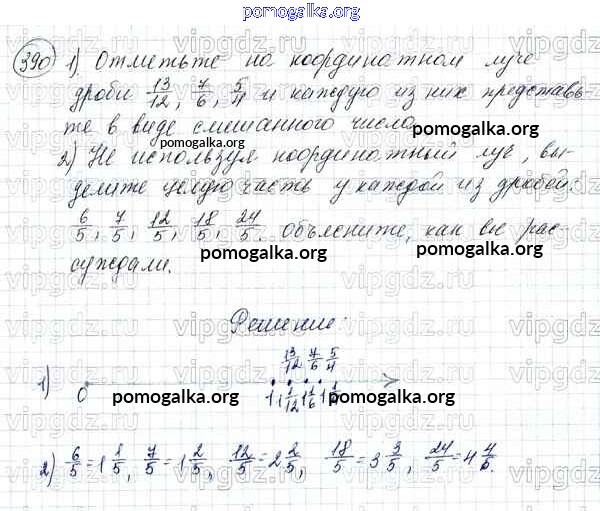 pomogalka.org
390 1) Отметьте на координатном луче
дроби 13/12, 7/6, 5/4 и каждую из них представь-
те в виде смешанного числа.
pomogalka.org
2) Не используя координатный луч, вы-
делите целую часть у каждой из дробей:
6/5, 7/5, 12/5, 18/5, 24/5. объясните, как вы рас-
pomogalka.org pomogalka.org
суждали.
Решение:
13/12 7/6 5/4
1) 0 1 1 1/12 1 1/6 1 1/4
pomogalka.org pomogalka.org
2) 6/5 = 1 1/5, 7/5 = 1 2/5, 12/5 = 2 2/5, 18/5 = 3 3/5, 24/5 = 4 4/5.
pomogalka.org